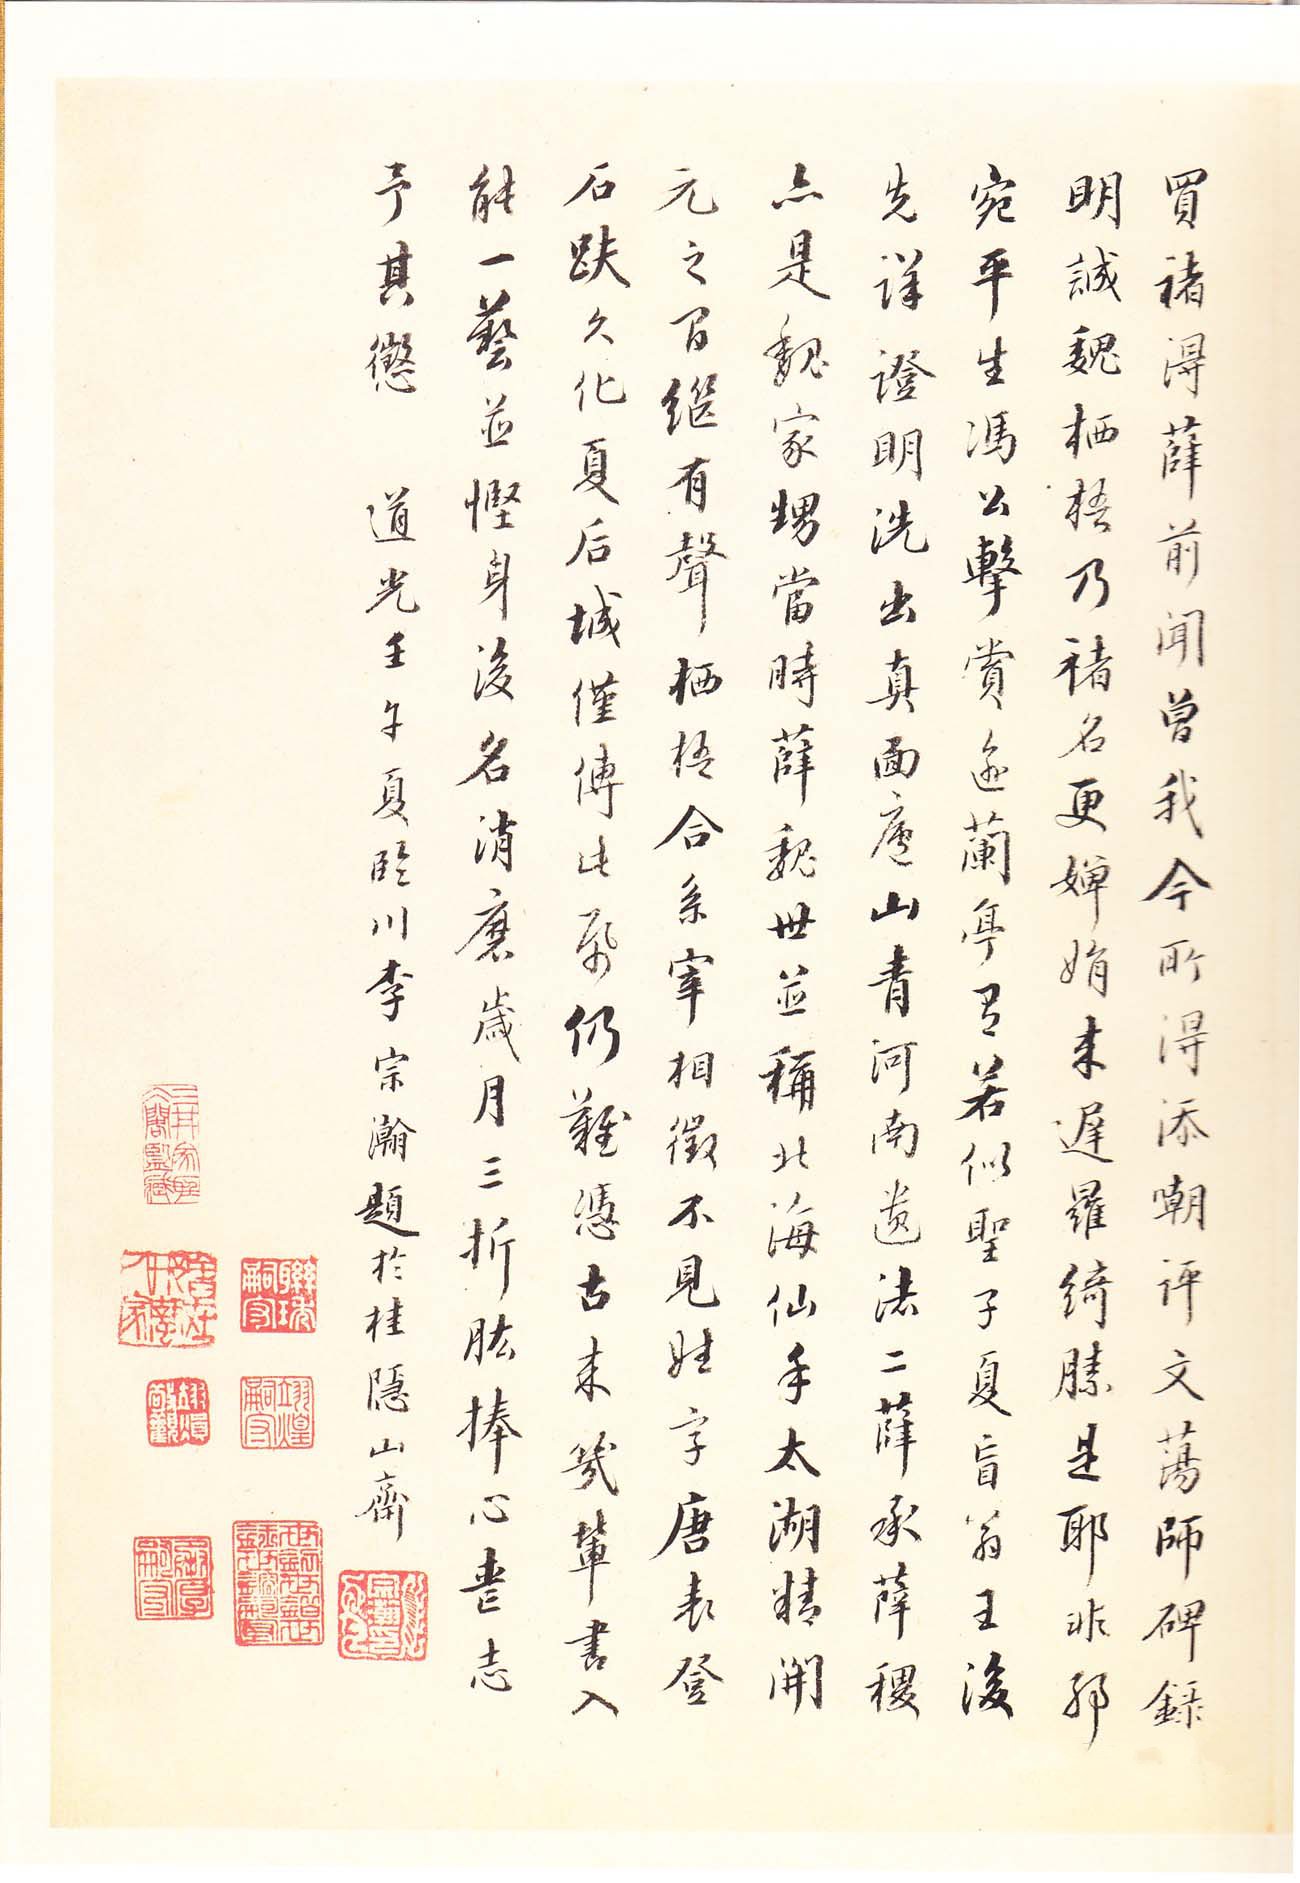 買褚得薛前聞曾我今所得添嘲評文蕩師碑録
明誠魏栖梧乃褚名更嬋娟來遲羅綺勝是耶非邪
宛平生馮公擊賞逾蘭亭胃若似聖子夏盲翁王後
先詳證明洗出真面廬山青河南遺法二薛承薛稷
亦是魏家甥當時薛魏世並稱北海仙手太湖精開
元之間繼有聲栖梧合系宰相徵不見姓字唐表登
石趺久化夏后城僅傳此紙仍難憑古來幾輩書入
能一藝並慳身後名消磨歲月三折肱捧心喪志
予其懲 道光壬午夏臨川李宗瀚題於桂隱山齋
聯琇嗣守
翊煌嗣守